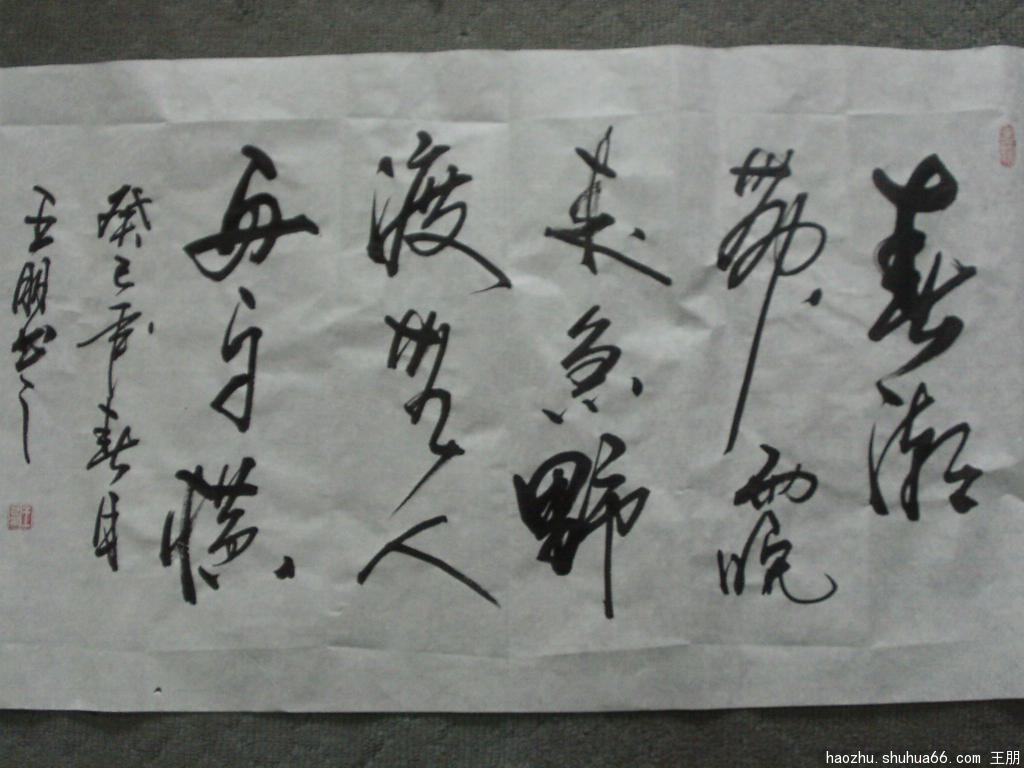 春潮
帶雨晚
来急野
渡無人
舟自横
癸巳年春月
王朋书之
haozhu.shuhua66.com 王朋